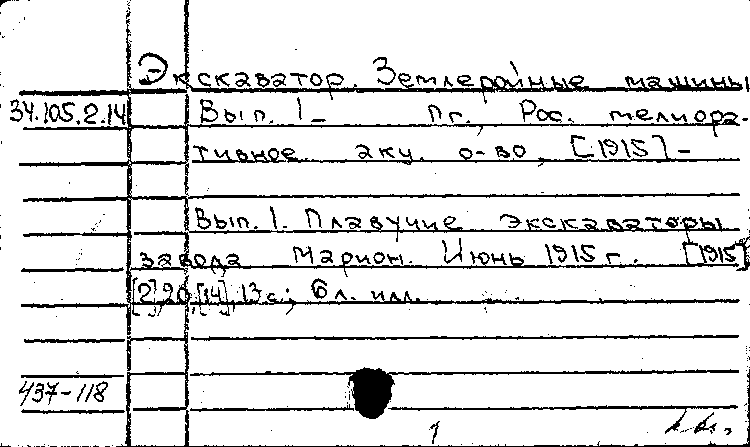 Экскаватор. Землеройные машины
34.105.2.14 Вып. 1- Пг., Рос. мелиора-
тивное акц. о-во, [1915] -
Вып. 1. Плавучие экскаваторы
завода Марион. Июнь 1915 г. [1915]
[2],20,[14],13 с.; 6 л. илл.
437-118
1